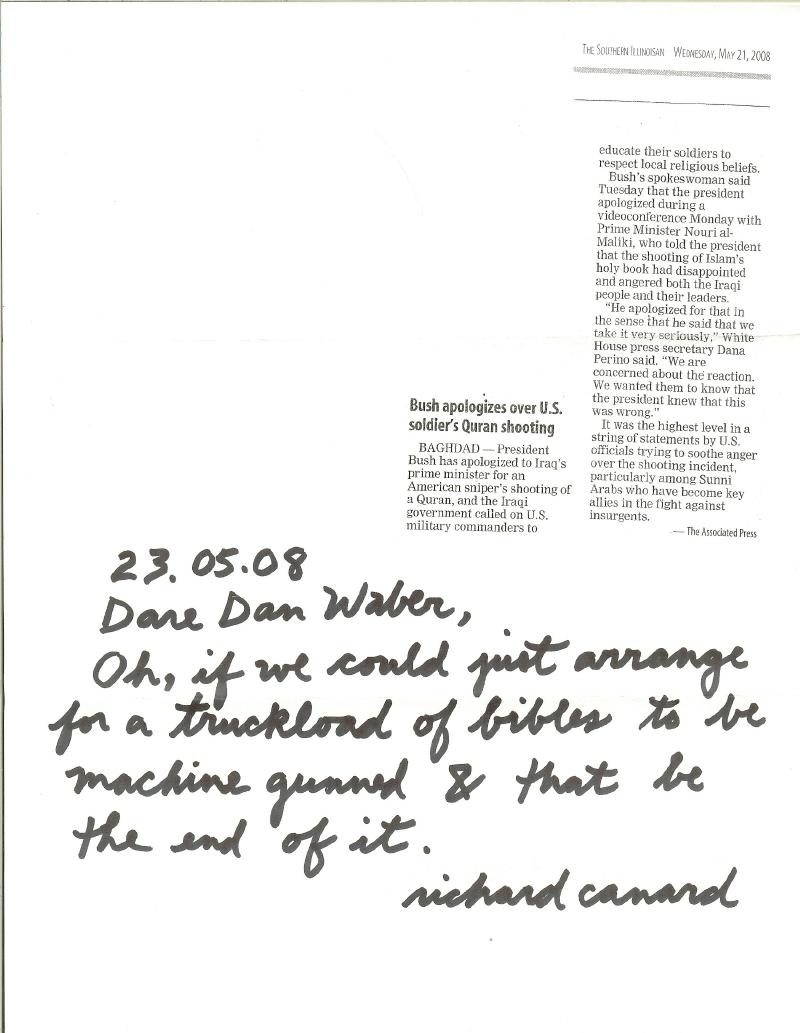 THE SOUTHERN ILLINOISAN WEDNESDAY, MAY 21, 2008
Bush apologizes over U.S.
soldier's Quran shooting
BAGHDAD — President
Bush has apologized to Iraq's
prime minister for an
American sniper's shooting of
a Quran, and the Iraqi
government called on U.S.
military commanders to
educate their soldiers to
respect local religious beliefs.
Bush's spokeswoman said
Tuesday that the president
apologized during a
videoconference Monday with
Prime Minister Nouri al-
Maliki, who told the president
that the shooting of Islam's
holy book had disappointed
and angered both the Iraqi
people and their leaders.
"He apologized for that in
the sense that he said that we
take it very seriously," White
House press secretary Dana
Perino said. "We are
concerned about the reaction.
We wanted them to know that
the president knew that this
was wrong."
It was the highest level in a
string of statements by U.S.
officials trying to soothe anger
over the shooting incident,
particularly among Sunni
Arabs who have become key
allies in the fight against
insurgents.
— The Associated Press
23.05.08
Dare Dan Waber,
Oh, if we could just arrange
for a truckload of bibles to be
machine gunned & that be
the end of it.
richard canard